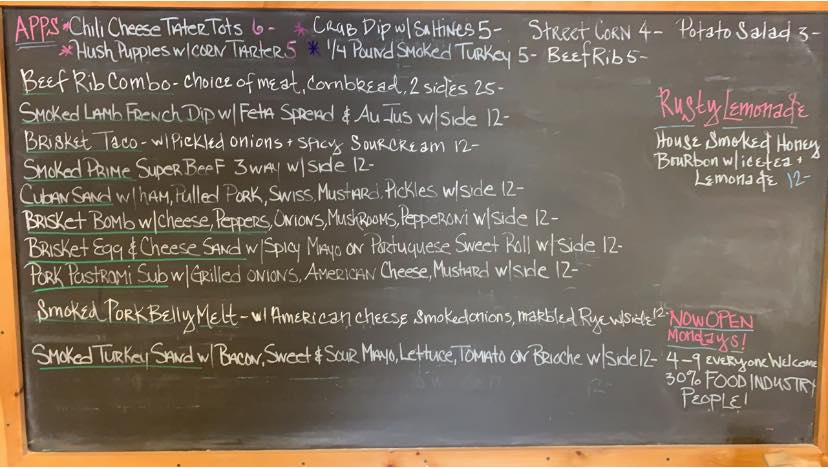 APPS * Chili Cheese Tater Tots 6- * Crab Dip w/ Saltines 5- Street Corn 4- Potato Salad 3-
* Hush Puppies w/ Corn Tarter 5 * 1/4 Pound Smoked Turkey 5- Beef Rib 5-
Beef Rib Combo - choice of meat, cornbread, 2 sides 25-
Smoked Lamb French Dip w/ Feta Spread & Au Jus w/ side 12-
Brisket Taco - w/ Pickled onions + spicy sour cream 12-
Smoked Prime Super Beef 3 way w/ side 12-
Cuban Sand w/ ham, Pulled Pork, Swiss, Mustard, Pickles w/ side 12-
Brisket Bomb w/ Cheese, Peppers, Onions, Mushrooms, Pepperoni w/ side 12-
Brisket Egg & Cheese Sand w/ Spicy Mayo on Portuguese Sweet Roll w/ side 12-
Pork Pastromi Sub w/ Grilled onions, American Cheese, Mustard w/ side 12-
Smoked Pork Belly Melt - w/ American cheese smoked onions, marbled Rye w/ side 12-
Smoked Turkey Sand w/ Bacon, Sweet & Sour Mayo, Lettuce, Tomato on Brioche w/ side 12-
Rusty Lemonade
House Smoked Honey
Bourbon w/ iced tea +
Lemonade 12-
Now Open
Mondays!
4-9 everyone welcome
30% FOOD INDUSTRY
PEOPLE!